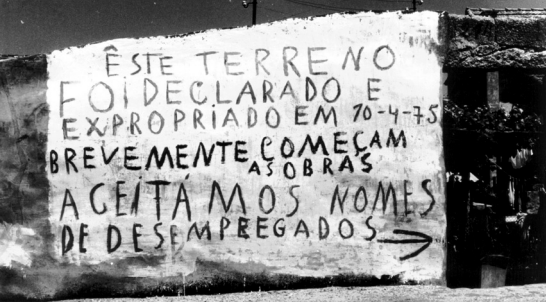 ÊSTE TERRENO
FOI DECLARADO E
EXPROPRIADO EM 10-4-75
BREVEMENTE COMEÇAM
AS OBRAS
ACEITÁMOS NOMES
DE DESEMPREEGADOS